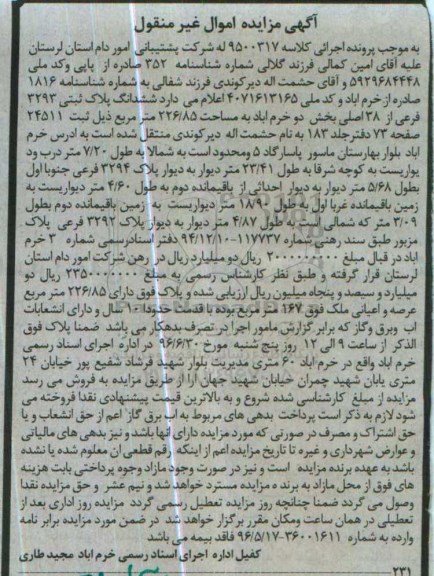 آگهی مزایده اموال غیر منقول
به موجب پرونده اجرائی کلاسه ۹۵۰۰۳۱۷ له شرکت پشتیبانی امور دام استان لرستان
علیه آقای امین کمالی فرزند گلالی شماره شناسنامه ۳۵۲ صادره از پاپی وکد ملی
۵۹۲۹۶۸۴۴۴۸ و آقای حشمت اله دیرکوندی فرزند شفالی به شماره شناسنامه ۱۸۱۶
صادره از خرم اباد و کد ملی ۴۰۷۱۶۱۳۱۶۵ اعلام می دارد ششدانگ پلاک ثبتی ۳۲۹۳
فرعی از ۲۸ اصلی بخش دو خرم اباد به مساحت ۲۲۶/۸۵ متر مربع ذیل ثبت ۲۴۵۱۱
صفحه ۷۳ دفترجلد ۱۸۳ به نام حشمت اله دیرکوندی منتقل شده است به ادرس خرم
اباد بلوار بهارستان ماسور پاسارگاد ۵ ومحدود است به شمالا به طول ۷/۲۰ متر درب ود
یواریست به کوچه شرقا به طول ۲۳/۴۱ متر دیوار به دیوار پلاک ۳۲۹۴ فرعی جنوبا اول
بطول ۵/۶۸ متر دیوار به دیوار احداثی از باقیمانده دوم به طول ۴/۶۰ متر دیواریست به
زمین باقیمانده غربا اول به طول ۱۸/۹۰ متر دیواریست به زمین باقیمانده دوم بطول
۳/۰۹ متر که شمالی است به طول ۴/۸۷ متر دیوار به دیوار پلاک ۳۲۹۲ فرعی پلاک
مزبور طبق سند رهنی شماره ۱۱۷۷۳۷-۹۴/۱۲/۱۰ دفتر اسنادرسمی شماره ۳ خرم
اباد در قبال مبلغ ۲۰۰۰۰۰۰۰۰۰ ریال دو میلیارد ریال در رهن شرکت امور دام استان
لرستان قرار گرفته و طبق نظر کارشناس رسمی به مبلغ ۲۳۵۰۰۰۰۰۰۰ ریال دو
میلیارد و سیصد و پنجاه میلیون ریال ارزیابی شده و پلاک فوق دارای ۲۲۶/۸۵ متر مربع
عرصه و اعیانی ملک فوق ۱۶۷ متر مربع بوده با قدمت حدودا ۱۰ سال و دارای انشعابات
اب وبرق وگاز که برابر گزارش مامور اجرا در تصرف بدهکار می باشد ضمنا پلاک فوق
الذکر از ساعت ۹ الی ۱۲ روز پنج شنبه مورخ ۹۶/۶/۳۰ در اداره اجرای اسناد رسمی
خرم اباد واقع در خرم اباد ۶۰ متری مدیریت بلوار شهید فرشاد شفیع پور خیابان ۲۴
متری یابان شهید چمران خیابان شهید جهان ارا از طریق مزایده به فروش می رسد
مزایده از مبلغ کارشناسی شده شروع و به بالاترین قیمت پیشنهادی نقدا فروخته می
شود لازم به ذکر است پرداخت بدهی های مربوط به اب برق گاز اعم از حق انشعاب و یا
حق اشتراک و مصرف در صورتی که مورد مزایده دارای انها باشد و نیز بدهی های مالیاتی
و عوارض شهرداری و غیره تا تاریخ مزایده اعم از اینکه رقم قطعی ان معلوم شده یا نشده
باشد به عهده برنده مزایده است و نیز در صورت وجود مازاد وجوه پرداختی بابت هزینه
های فوق از محل مازاد به برنده مزایده مسترد خواهد شد و نیم عشر و حق مزایده نقدا
وصول می گردد ضمنا چنانچه روز مزایده تعطیل رسمی گردد مزایده روز اداری بعد از
تعطیلی در همان ساعت ومکان مقرر برگزار خواهد شد در ضمن مورد مزایده برابر نامه
وارده به شماره ۳۶۰۰۱۶۱۱-۹۶/۵/۱۷ فاقد بیمه می باشد
کفیل اداره اجرای اسناد رسمی خرم اباد مجید طاری
۲۳۱